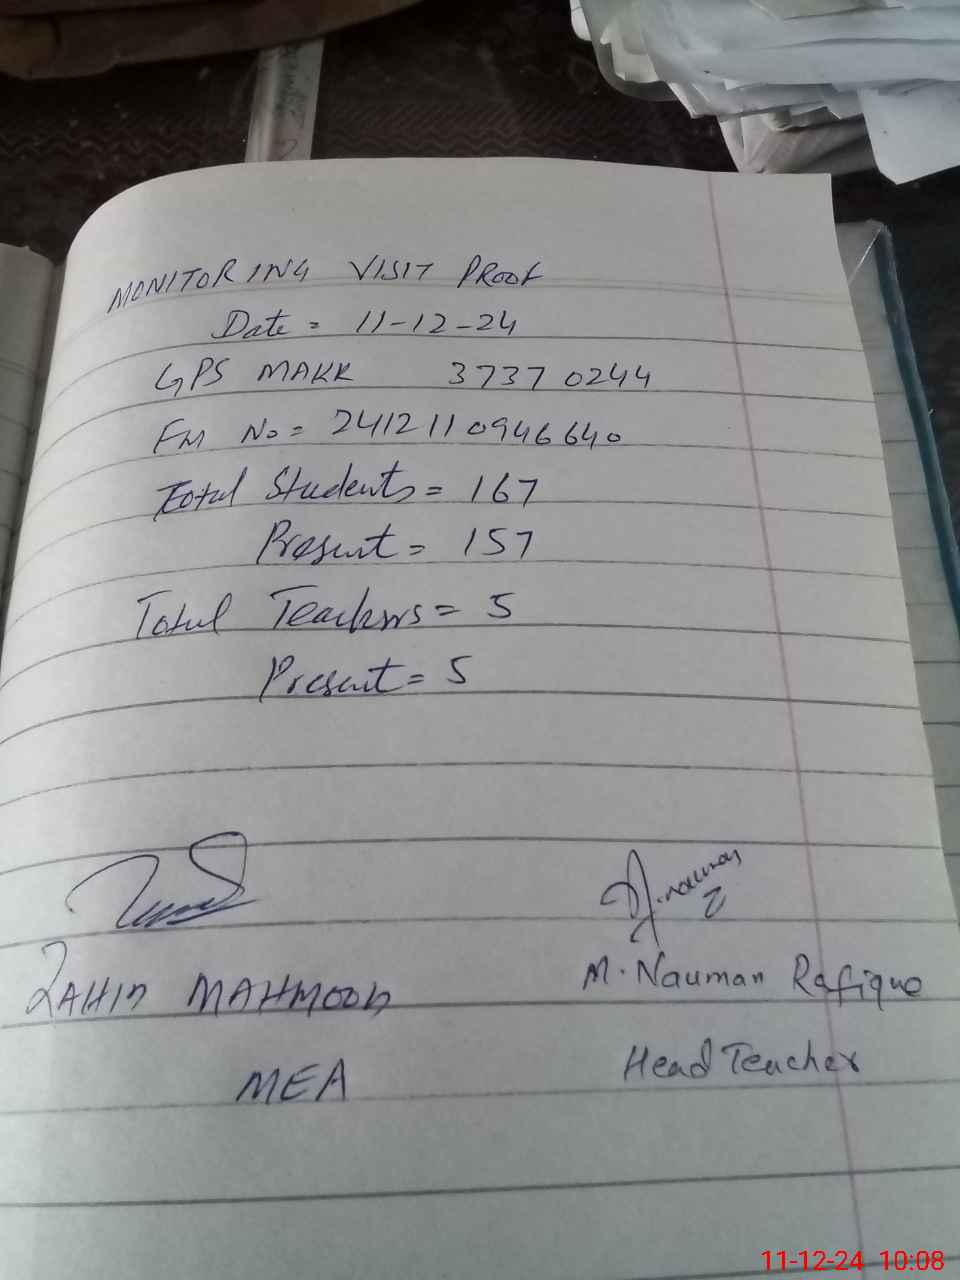 MONITORING VISIT PROOF
Date = 11-12-24
GPS MAKK 37370244
FM No = 2412110946640
Total Students = 167
Present = 157
Total Teachers = 5
Present = 5
M. Nauman Rafique
ZAHID MAHMOOD
Head Teacher
MEA
11-12-24 10:08